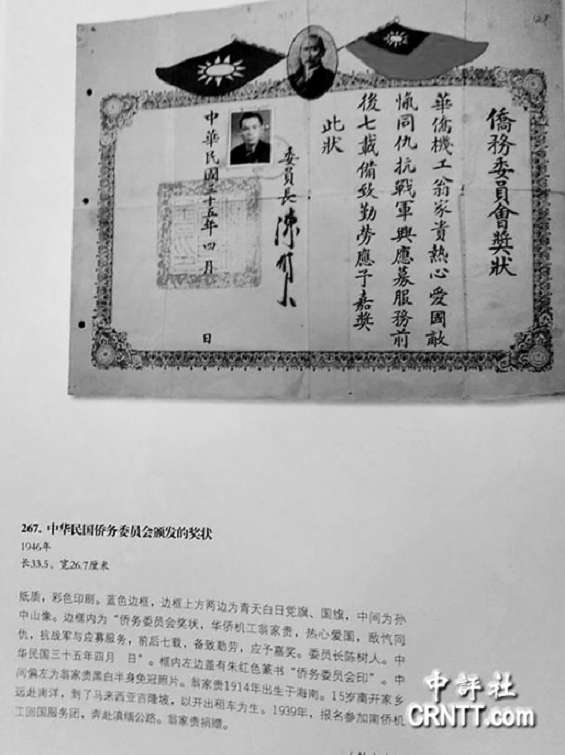 128
僑務委員會獎狀
華僑機工翁家貴熱心愛國敵
愾同仇抗戰軍興應募服務前
後七載備致勤勞應予嘉獎
此狀
委員長陳樹人
中華民國三十五年四月 日
267. 中华民国侨务委员会颁发的奖状
1946年
长33.5、宽26.7厘米
纸质，彩色印刷。蓝色边框，边框上方两边为青天白日党旗、国旗，中间为孙
中山像。边框内为“侨务委员会奖状，华侨机工翁家贵，热心爱国，敌忾同
仇，抗战军与应募服务，前后七载，备致勤劳，应予嘉奖。委员长陈树人。中
华民国三十五年四月 日”。框内左边盖有朱红色篆书“侨务委员会印”。中
间偏左为翁家贵黑白半身免冠照片。翁家贵1914年出生于海南。15岁离开家乡
远赴南洋，到了马来西亚吉隆坡，以开出租车为生。1939年，报名参加南侨机
工回国服务团，奔赴滇缅公路。翁家贵捐赠。
中評社
CRNTT.com